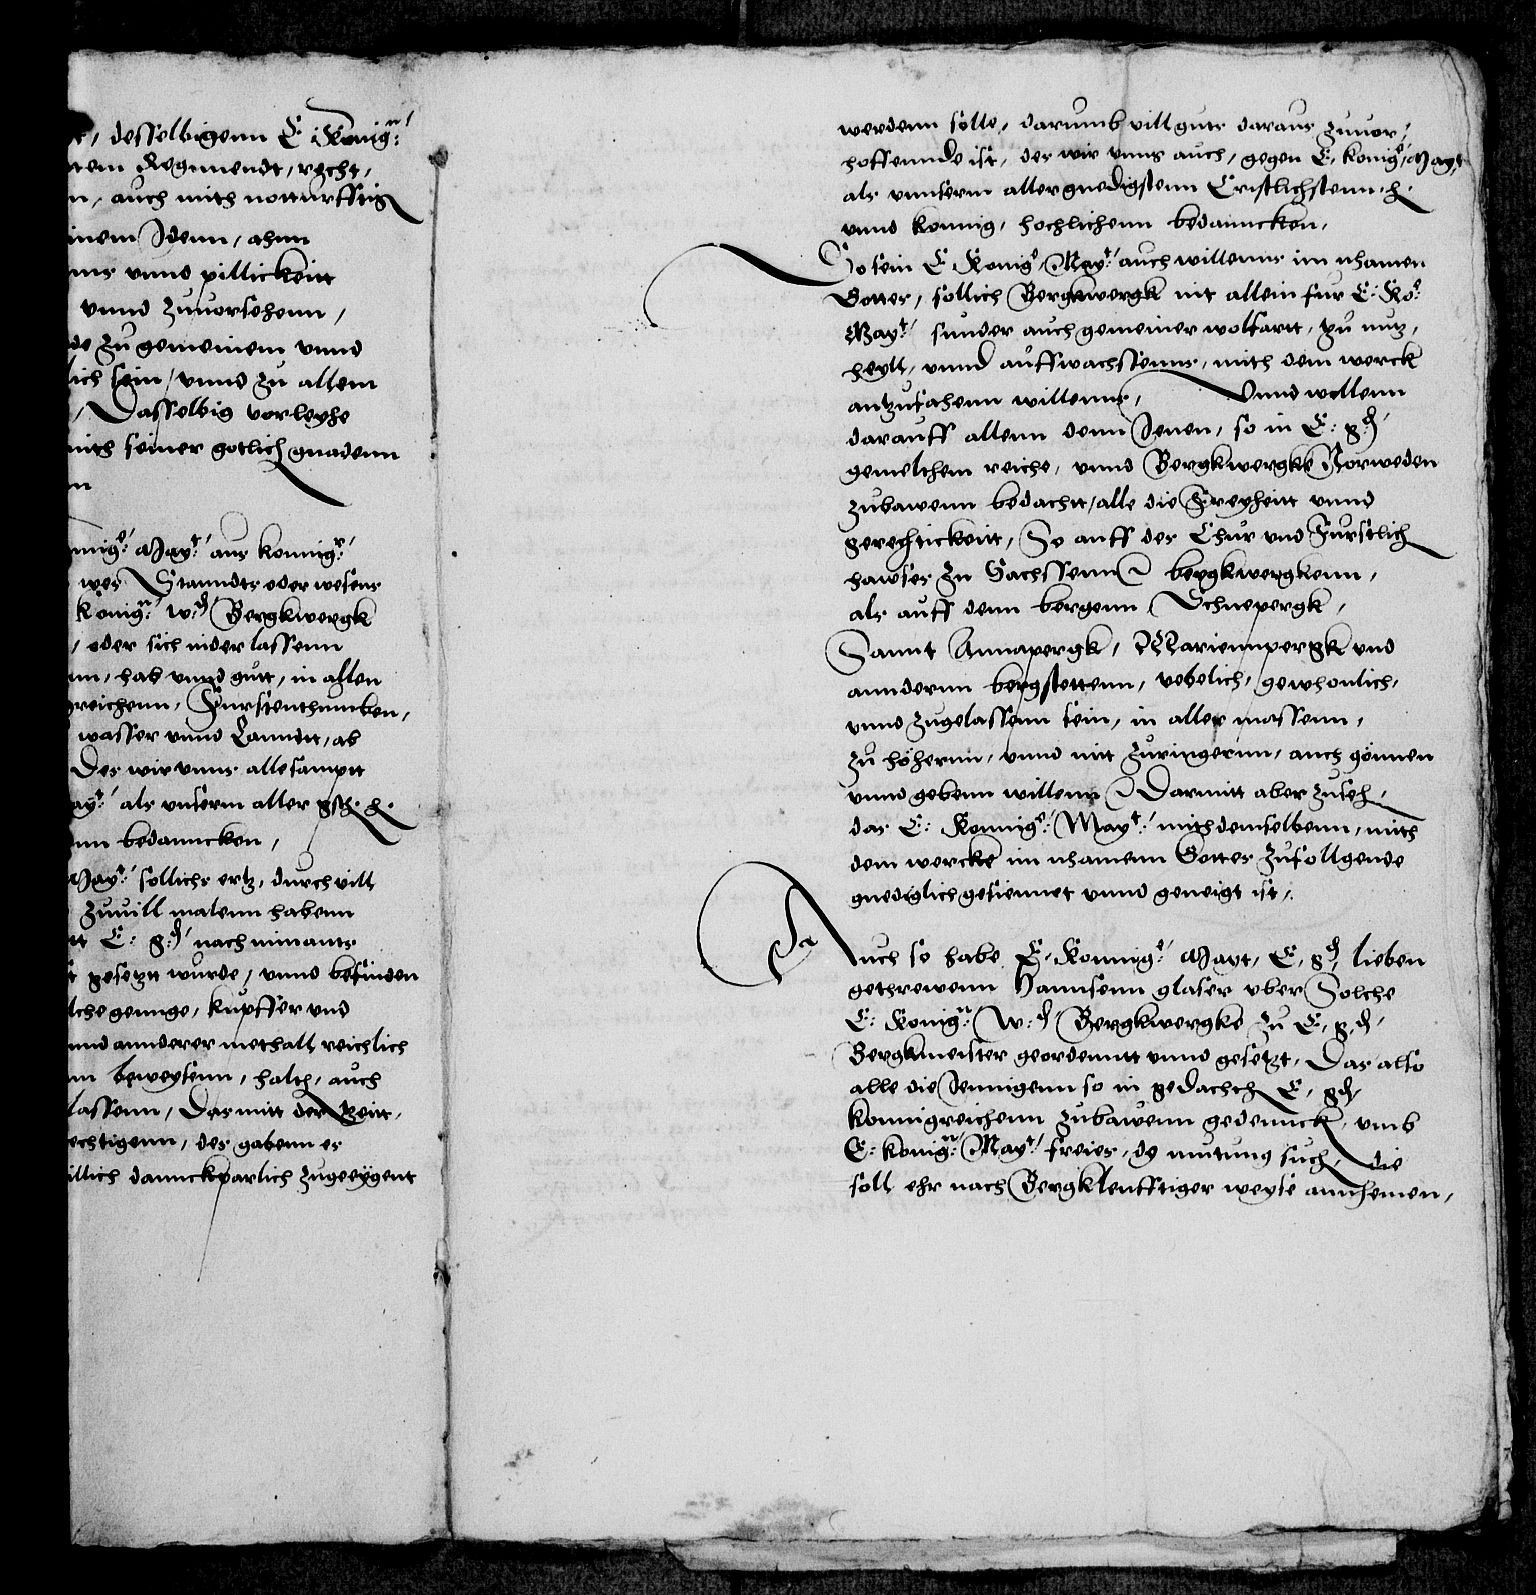 desselbigenn E Konig:n
tem Regimendt, recht,
n, auch mith notturfftig
inem Jdenn, ahnn
nns vnnd pillickeitt
vnnd Zuuorsehenn,
de zu gemeinem vnnd
lich sein, vnnd zu allem
, Dasselbig vorleyhe
mith seiner gotlich gnadenn
nn
nnig:e May:t aus konnig:r
wes Stanndts oder wesens
konig:n w:d Bergkwergk
, oder sich nider lassenn
nn, hab vnnd gutt, in allen
greichenn, Furstenthumben,
wasser vnnd Lanndtt, ab
Des wir vnns alle sampt
ay:t als vnserm aller gsch. h.
nn bedanncken,
May:t sollichs ertz, durch vill
zuuill malenn habenn
tt E: g:d nach ninants
t gesetzt wurde, vnnd befinden
lche genuge, Kupffer vnd
vnnd annderer methall reichlich
nn beweysenn, halth, auch
lassenn, Darmitt der Zeitt,
echtigenn, des gabenn er
illich danckparlich zugeeygent
werdenn solle, darumb vill guts daraus zuuor,
hoffennde ist, des wir vnns auch, gegen E, konig:e May:t
als vnnserm allergnedigstenn Cristlichstenn. h.
vnnd konnig, hochlichenn bedanncken,
So sein E Konig:e May:t auch willenns im nhamen
Gottes, sollich Bergkwergk nit allein fur E: Ko:e
May:t sunder auch gemeiner wolfartt, zu nutz,
heyll, vnnd auffwachstenns, mith dem werck
antzufahenn willenns, Vnnd wollenn
darauff allenn denn Jenen, so in E: g:d
gemelthem reiche, vnnd Bergkwergke Norweden
zubawenn bedachtt, alle die Freyheitt vnnd
gerechtickeitt, So auff der Chur vnd Furstlich
hawses zu Sachssenn bergkwergkenn,
als auff denn bergenn Schnepergk,
Sannt Annapergk, Mariennpergk vnd
annderenn bergstettenn, vebelich, gewhonlich,
vnnd zugelassenn sein, in aller massenn,
zu höhernn, vnnd nitt zuringernn, auch gönnen
vnnd gebenn willenns Darmitt aber zuseh,
das E: Konnig:e May:t mith demselbenn, mith
dem wercke im nhamenn Gottes zufollgende
gnediglich gesiennet vnnd geneigt ist,
Auch so habe E, Konnig:e Mayt, E, g:d, lieben
gethrewenn Hannsenn glaser vber Solche
E: Konig:n W:d Bergkwergke zu E, g,d,
Bergkmeister geordenntt vnnd gesetzt, Das also
alle die Jennigenn so in gedachth E, gd,
konnigreichenn zubawenn gedennck, vmb
E: konig:n May:t freies, de mutung such, die
soll ehr nach Bergkleufftiger weyse annhemen,